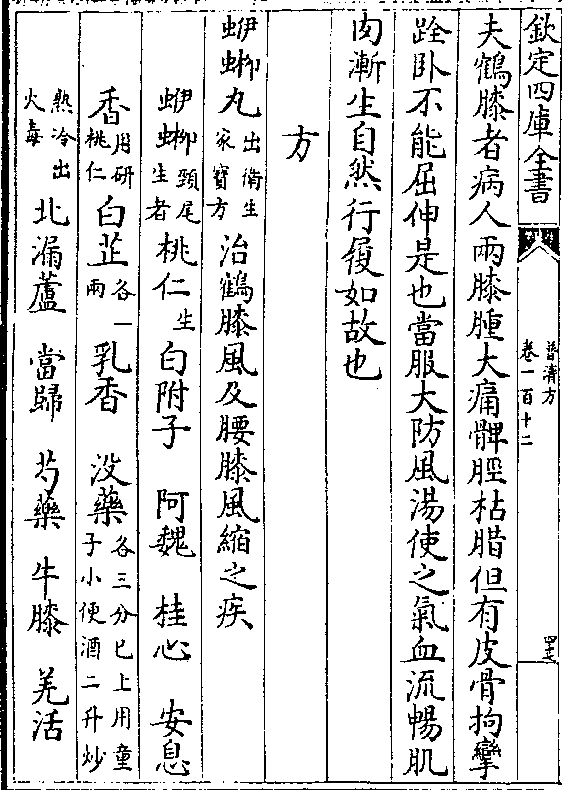 欽定四庫全書
普濟方
卷一百十二
夫鶴膝者病人兩膝腫大痛髀脛枯腊但有皮骨拘攣
跧卧不能屈伸是也當服大防風湯使之氣血流暢肌
肉漸生自然行履如故也
方
蛜蜥丸出衛生家寳方治鶴膝風及腰膝風縮之疾
蛜蜥頭尾生者桃仁生白附子 阿魏 桂心 安息
香用研桃仁白芷各一兩乳香 没藥各三分已上用童子小便酒二升炒
熱冷出火毒北漏蘆 當歸 芍藥 牛膝 羌活